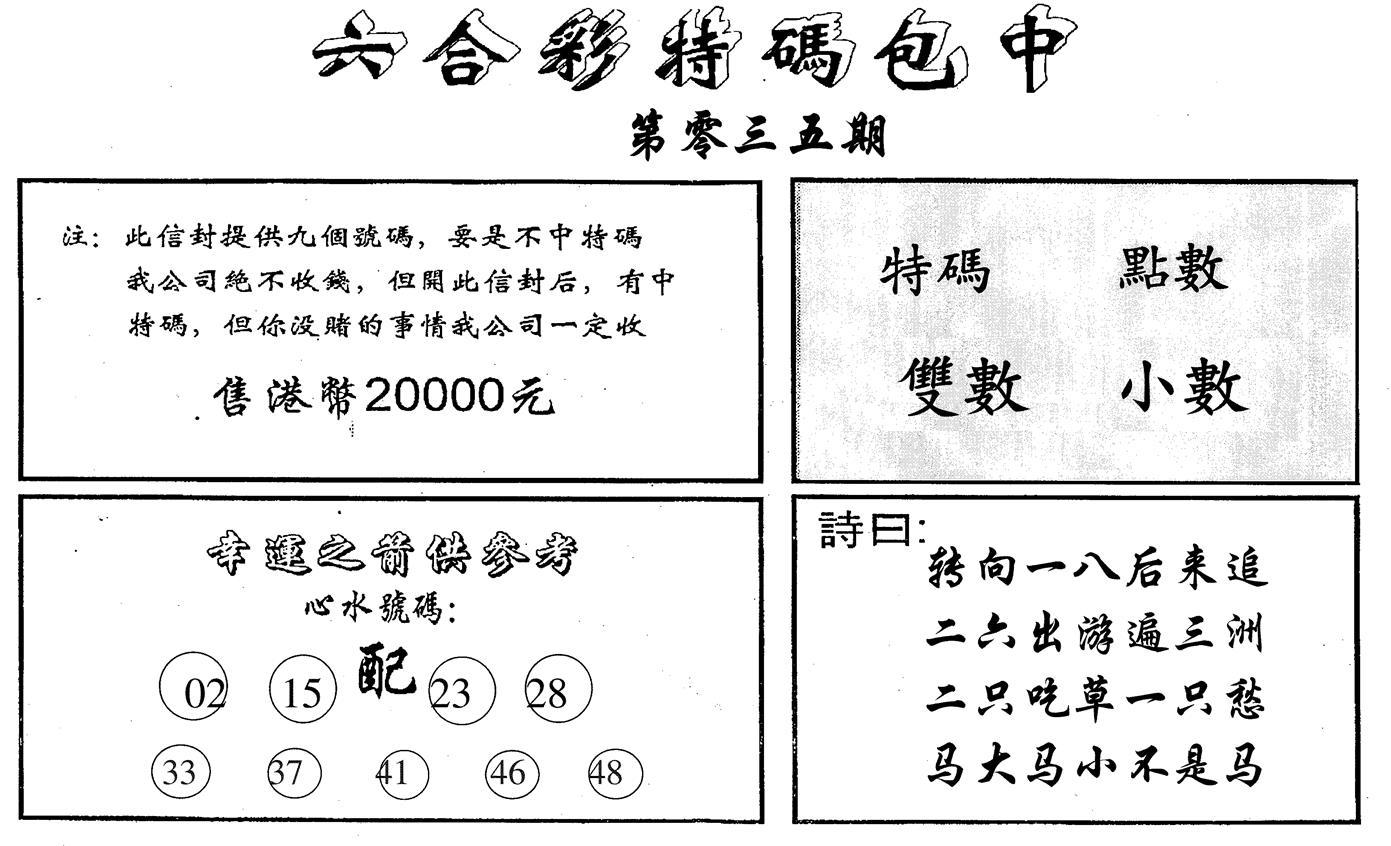 六合彩特碼包中
第零三五期
注：此信封提供九個號碼，要是不中特碼
我公司絕不收錢，但開此信封后，有中
特碼，但你没賭的事情我公司一定收
售港幣20000元
特碼 點數
雙數 小數
幸運之箭供參考
心水號碼：
02 15 配 23 28
33 37 41 46 48
詩曰：
转向一八后来追
二六出游遍三洲
二只吃草一只愁
马大马小不是马